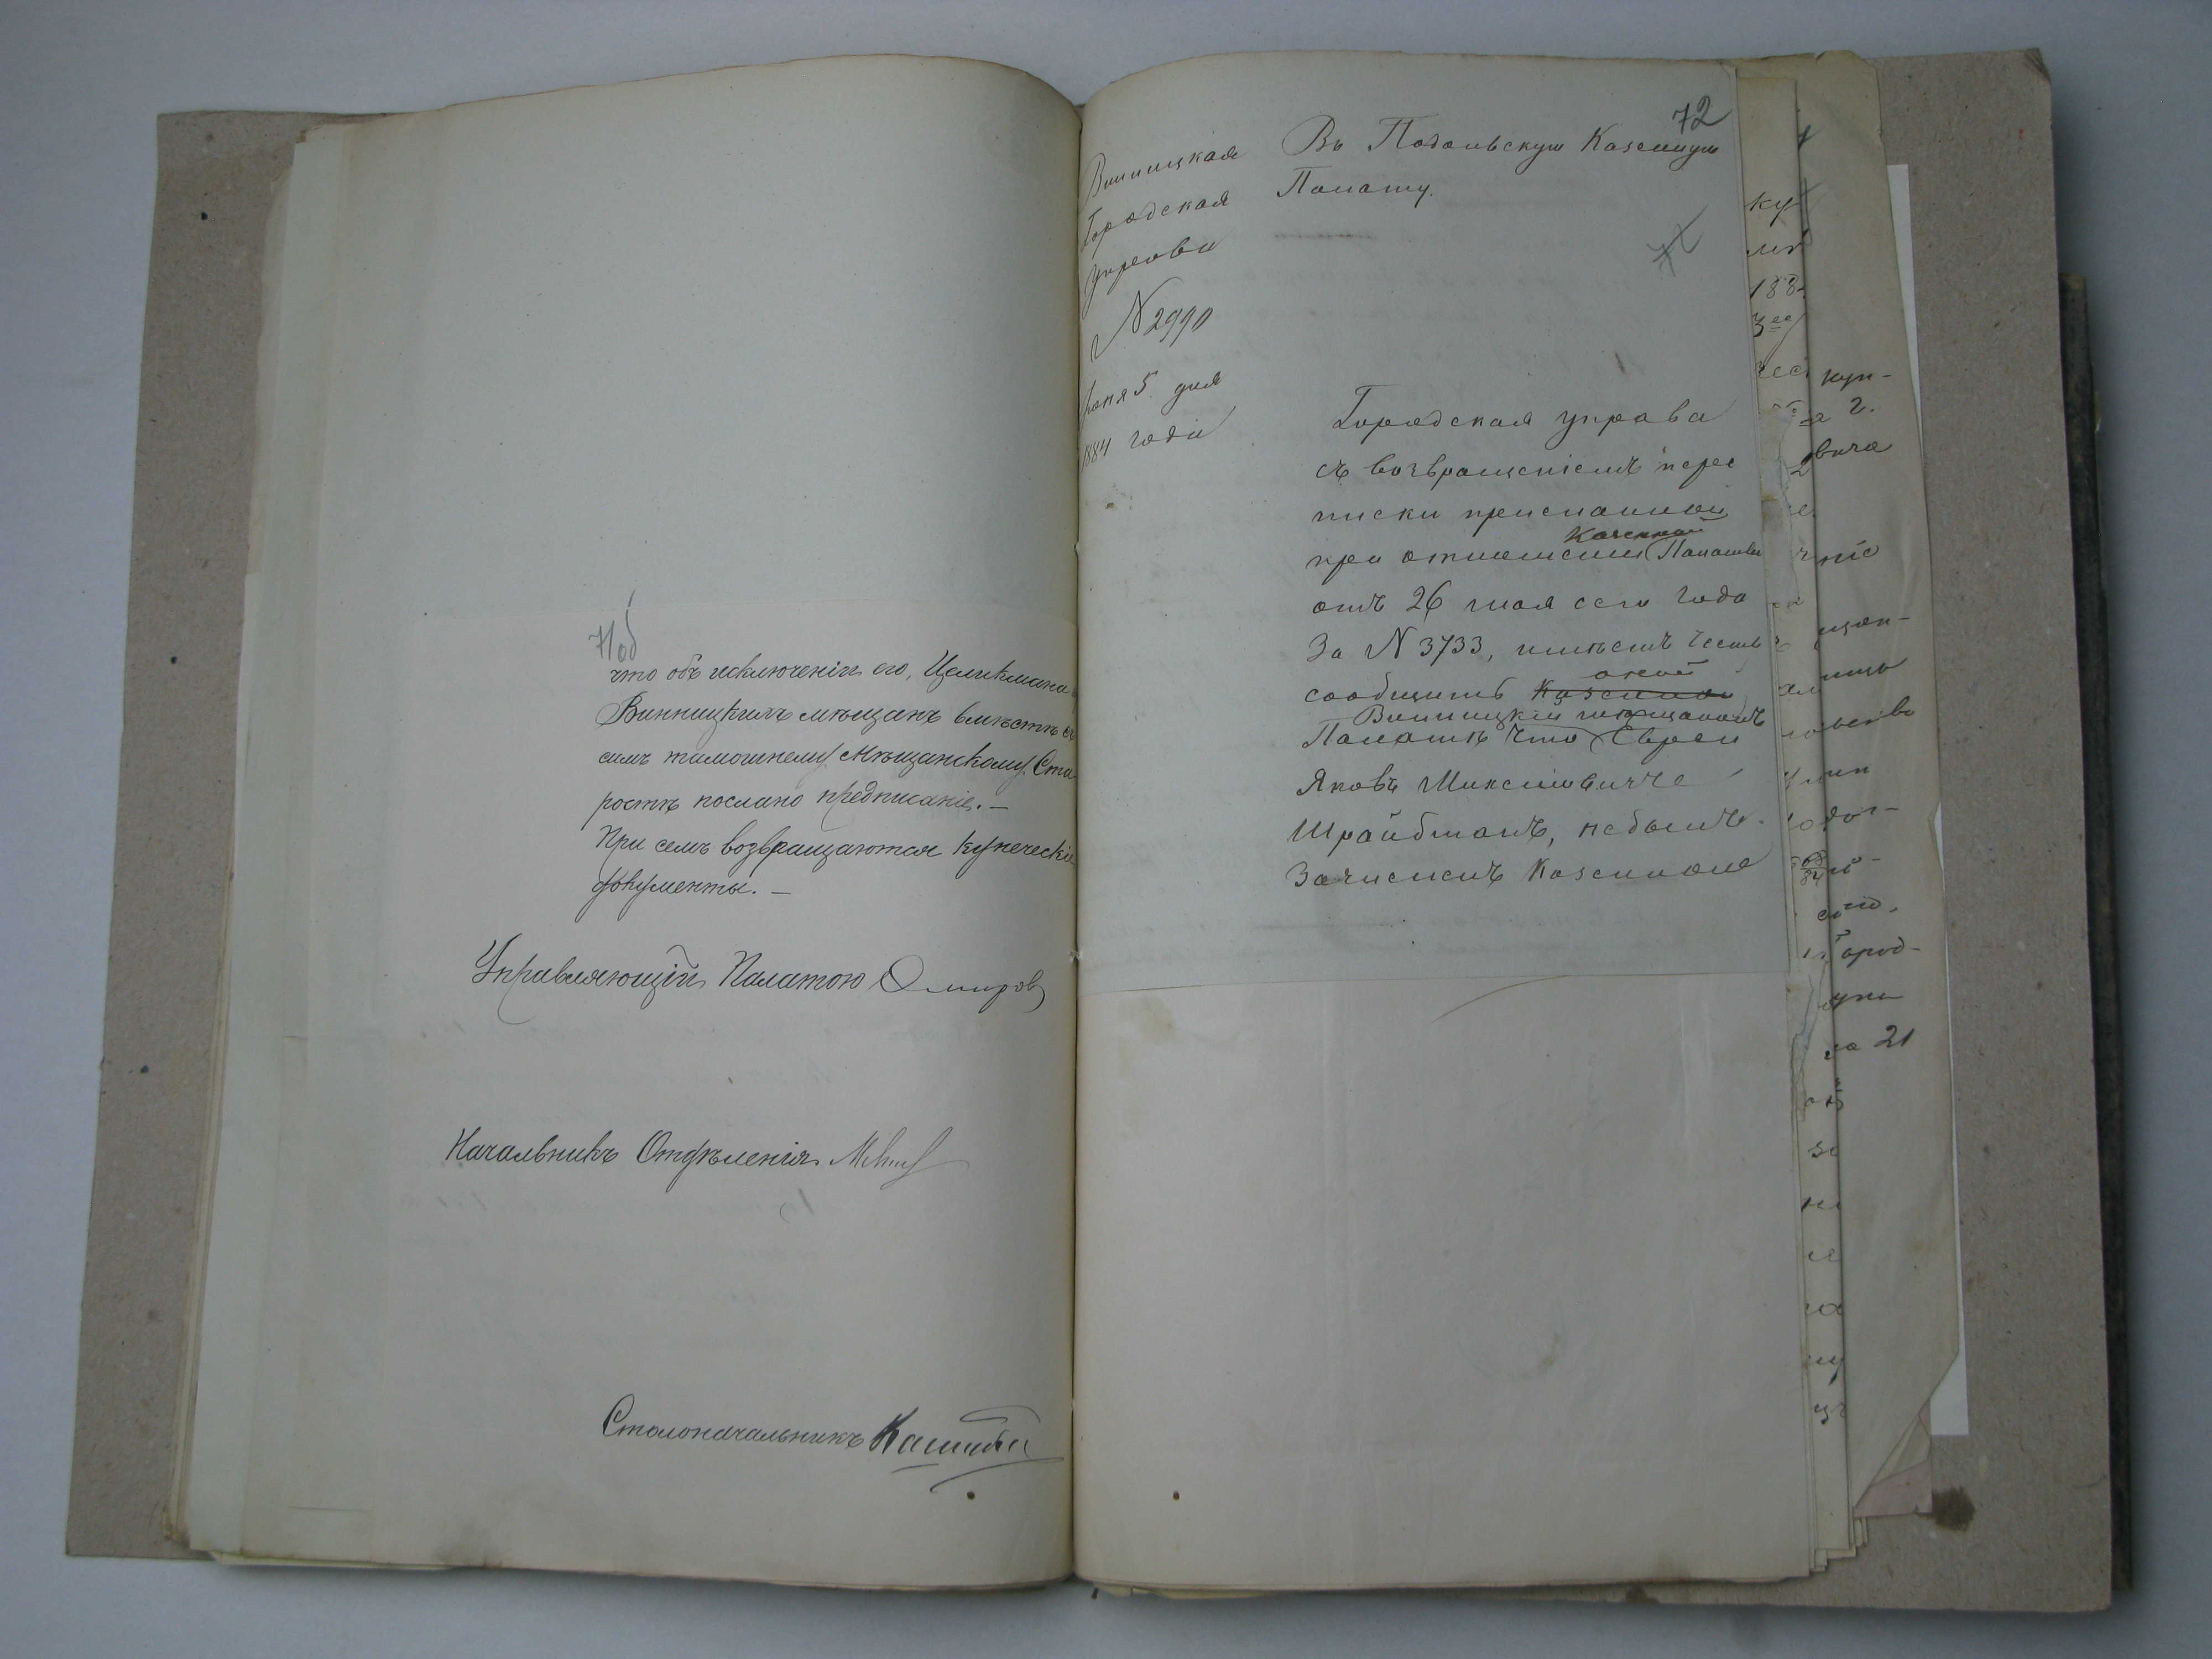 71 об
что объ исключеніи его, Целикмана
Винницкимъ мѣщанъ вмѣстѣ съ
симъ тамошнему Мѣщанскому Ста
ростѣ послано предписаніе. —
При семъ возвращаются купеческіе
документы. —
Управляющій Палатою
Начальникъ Отдѣленія
Столоначальникъ
72
Винницкая
Городская
управа
N 2990
Іюня 5 дня
1884 года
Въ Подольскую Казенную
Палату.
72
Городская управа
съ возвращеніемъ пере
писки присланной
Казенной
при отношеніи Палаты
отъ 26 мая сего года
За N 3733, имѣетъ честь
оной
сообщить Казенной
Винницкій мѣщанинъ
Палатѣ что Еврей
Яковъ
Шрайбманъ, небылъ
Зачисленъ Казенною
кун-
г.
вича
ніе
щан-
Город-
на 21